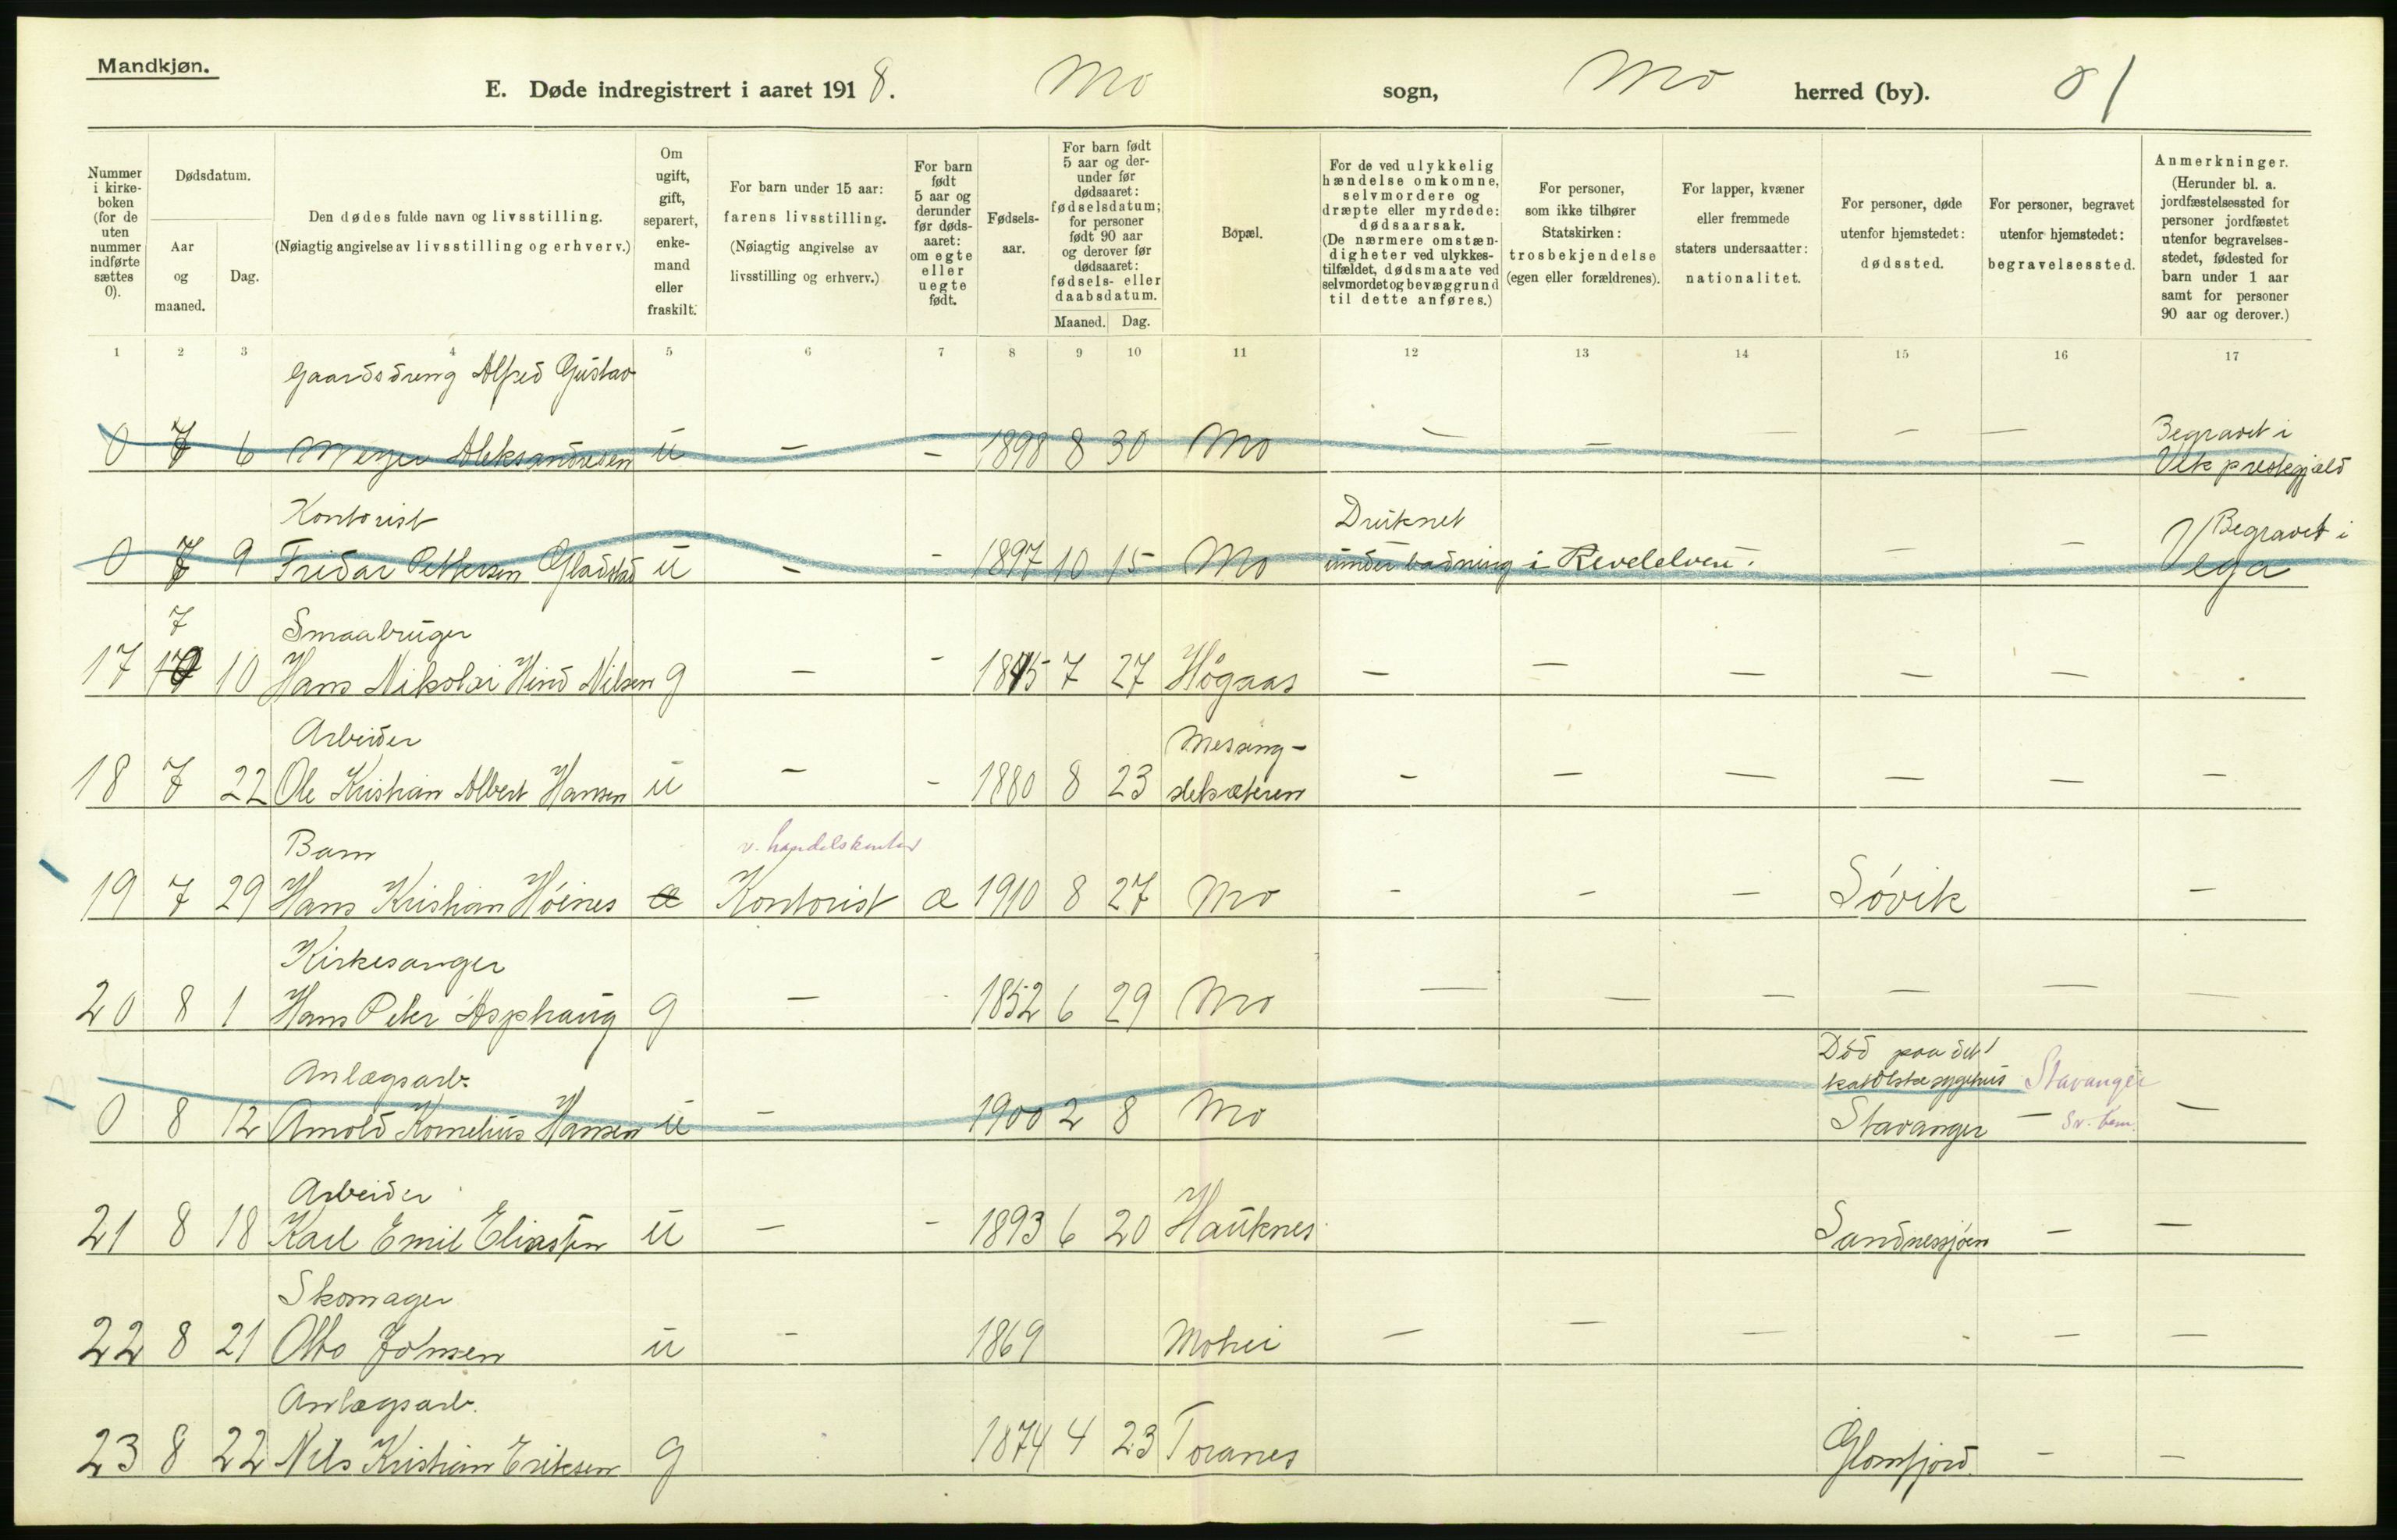 Mandkjøn.
E. Døde indregistrert i aaret 1918. Mo sogn, Mo herred (by). 81
Nummer i kirkeboken (for de uten nummer indførte sættes 0).
Dødsdatum.
Aar og maaned.
Dag.
Den dødes fulde navn og livsstilling.
(Nøiagtig angivelse av livsstilling og erhverv.)
Om ugift, gift, separert, enkemand eller fraskilt.
For barn under 15 aar: farens livsstilling. (Nøiagtig angivelse av livsstilling og erhverv.)
For barn født 5 aar og derunder før dødsaaret: om egte eller uegte født.
Fødselsaar.
For barn født 5 aar og derunder før dødsaaret: fødselsdatum; for personer født 90 aar og derover før dødsaaret: fødsels- eller daabsdatum.
Maaned. Dag.
Bopæl.
For de ved ulykkelig hændelse omkomne, selvmordere og dræpte eller myrdede: dødsaarsak. (De nærmere omstændigheter ved ulykkestilfældet, dødsmaate ved selvmordet og bevæggrund til dette anføres.)
For personer, som ikke tilhører Statskirken: trosbekjendelse (egen eller forældrenes).
For lapper, kvæner eller fremmede staters undersaatter: nationalitet.
For personer, døde utenfor hjemstedet: dødssted.
For personer, begravet utenfor hjemstedet: begravelsessted.
Anmerkninger. (Herunder bl. a. jordfæstelsessted for personer jordfæstet utenfor begravelsesstedet, fødested for barn under 1 aar samt for personer 90 aar og derover.)
1 2 3 4 5 6 7 8 9 10 11 12 13 14 15 16 17
Gaardsdreng Alfred Gustav
0 7 6 Meyer Aleksandersen u — — 1898 8 30 Mo — — — — — Begravet i
prestegjeld
Kontorist Druknet Begravet i
0 7 9 Fridar Pettersen Gladstad u — — 1897 10 15 Mo under badning i Revelelven. — — Vega
7 Smaabruger
17 10 Hans Nikolai Hind Nilsen g — — 1845 7 27 Høgaas — — — — —
Arbeider Messing-
18 7 22 Ole Kristian Albert Hansen u — — 1880 8 23 sletsæteren — — — — — —
Barn v. handelskontor
19 7 29 Hans Kristian Høines æ Kontorist æ 1910 8 27 Mo — — — Søvik —
Kirkesanger
20 8 1 Hans Peter Asphaug g — 1852 6 29 Mo — — — — — —
Anlægsarb. Død paa det
katolske sygehus Stavanger
0 8 12 Arnold Kornelius Hansen u — 1900 2 8 Mo Stavanger — —
Arbeider
21 8 18 Karl Emil Eliassen u — — 1893 6 20 Hauknes Sandnessjøen — —
Skomager
22 8 21 Otto Johnsen u — 1869 Mohei — — — — —
Anlægsarb.
23 8 22 Nils Kristian Eriksen g 1874 4 23 Toranes Glomfjord — —